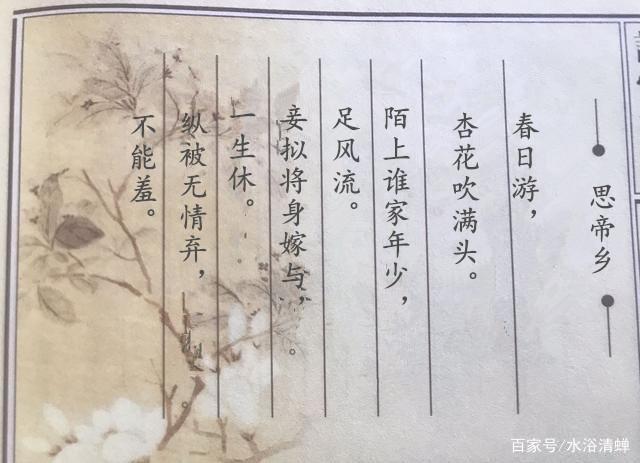 思帝乡
春日游，
杏花吹满头。
陌上谁家年少，
足风流。
妾拟将身嫁与，
一生休。
纵被无情弃，
不能羞。
百家号/水浴清蝉